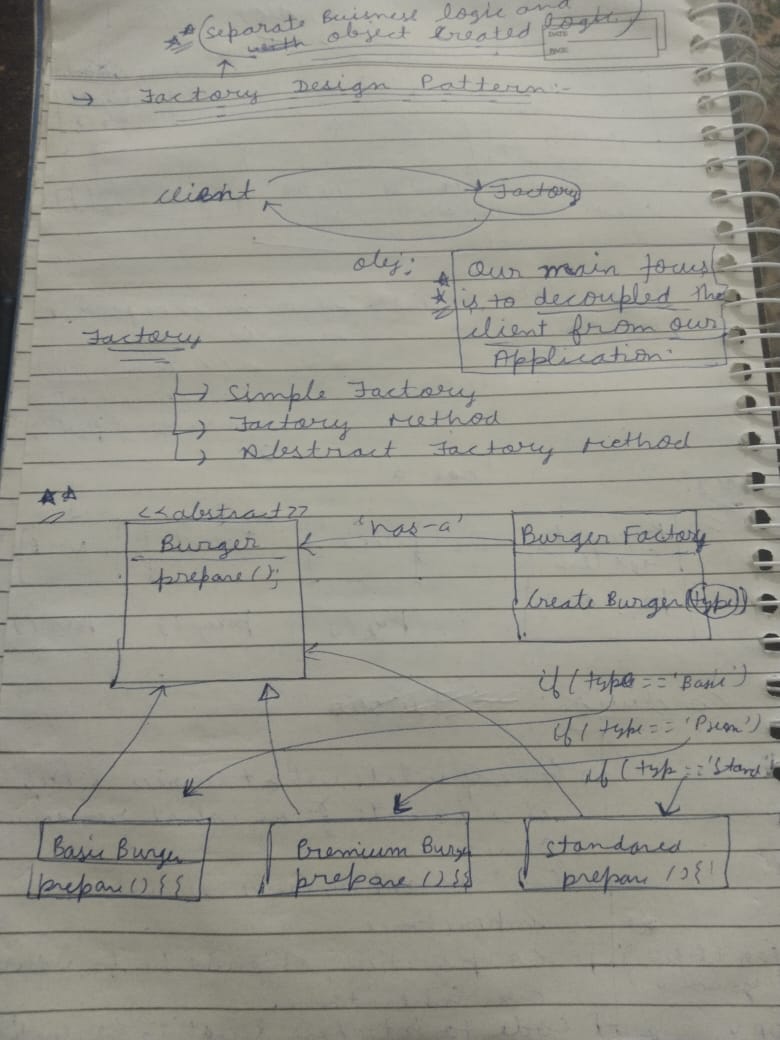 (separate Buisness logic and
with object created logic)
DATE
PAGE
→ Factory Design Pattern:-
client
Factory
obj;
Our main focus
is to decoupled the
client from our
Application.
Factory
↳ Simple Factory
↳ Factory Method
↳ Abstract Factory Method
<<abstract>>
'has-a'
Burger
prepare();
Burger Factory
Create Burger(type)
if ( type == 'Basic')
if ( type == 'Prem')
if ( typ == 'Stand
Basic Burger
prepare () {}
Premium Burge
prepare () {}
Standared
prepare () {